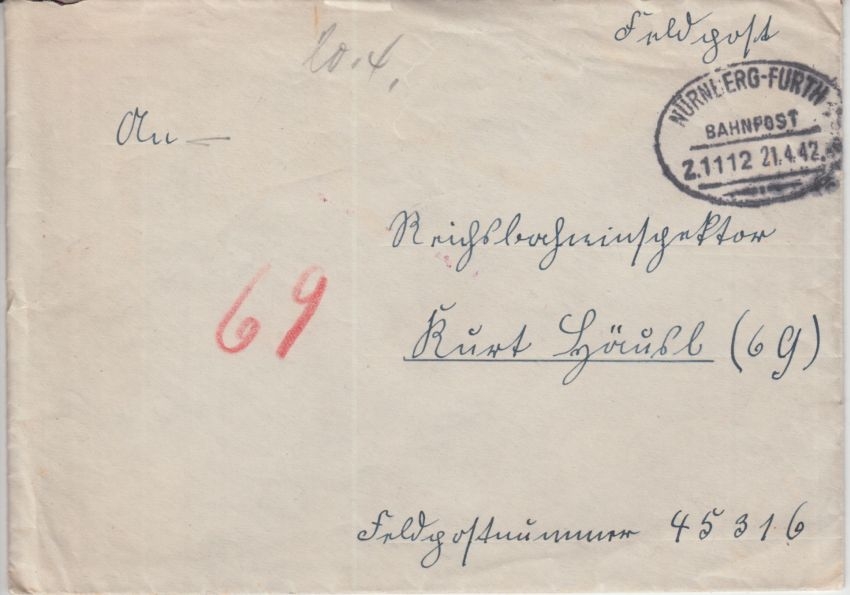 Feldpost
20.4.
NÜRNBERG-FÜRTH
BAHNPOST
Z.1112 21.4.42
An
Reichsbahninspektor
69
Kurt Häusl (69)
Feldpostnummer 45316